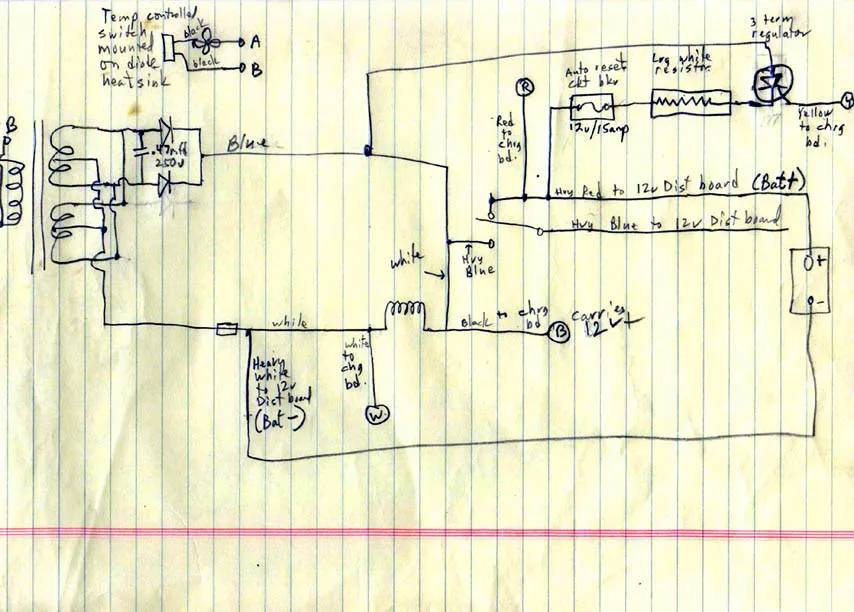 Temp controlled
switch
mounted
on diode
heatsink
black
black
A
B
3 term
regulator
Auto reset
ckt bkr
12v/15amp
Lrg white
resistr.
R
Red
to
chrg
bd.
Yellow
to chrg
bd.
B
.47mfd
250v
Blue
Hvy Red to 12v Dist board (Batt)
Hvy Blue to 12v Dist board
Hvy
Blue
white
+
-
white
Black to chrg
bd
B
Carries
12v+
Heavy
white
to 12v
Dist board
(Bat-)
white
to
chg
bd.
W